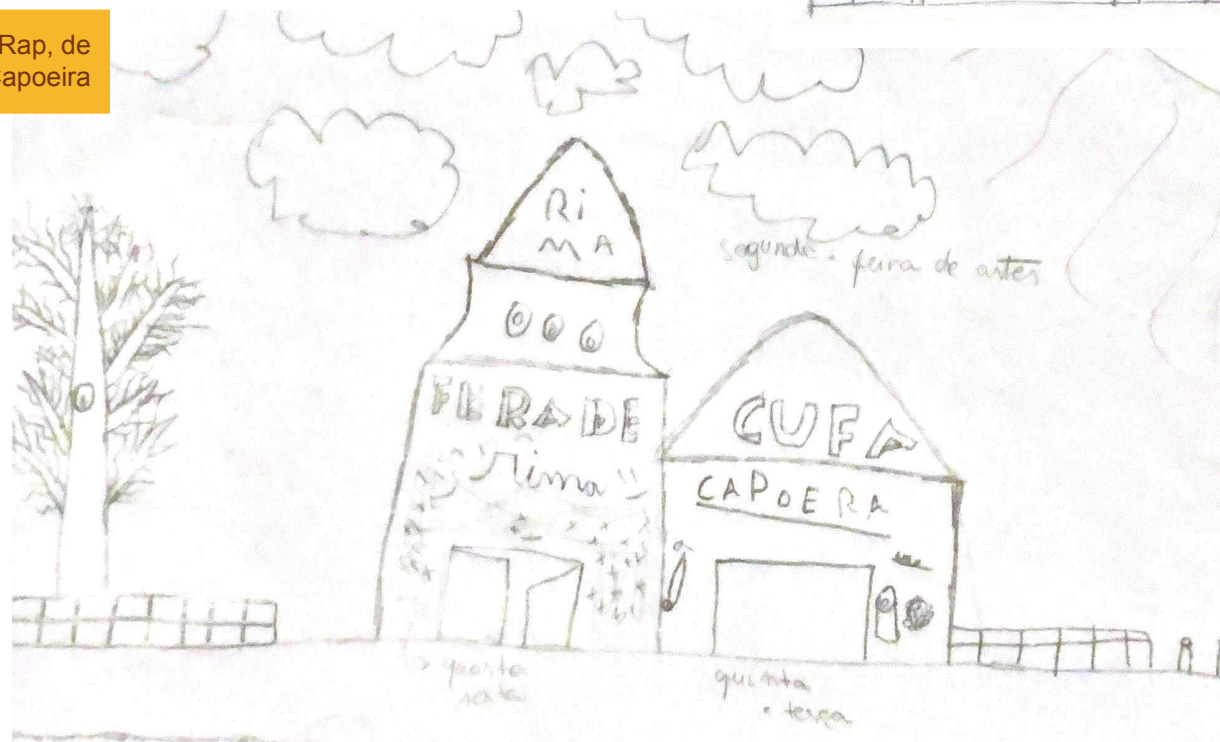 Rap, de
Capoeira
Ri
MA
segunda - feira de artes
FERA DE
rima
CUFA
CAPOERA
quarta
sexta
quinta
terça